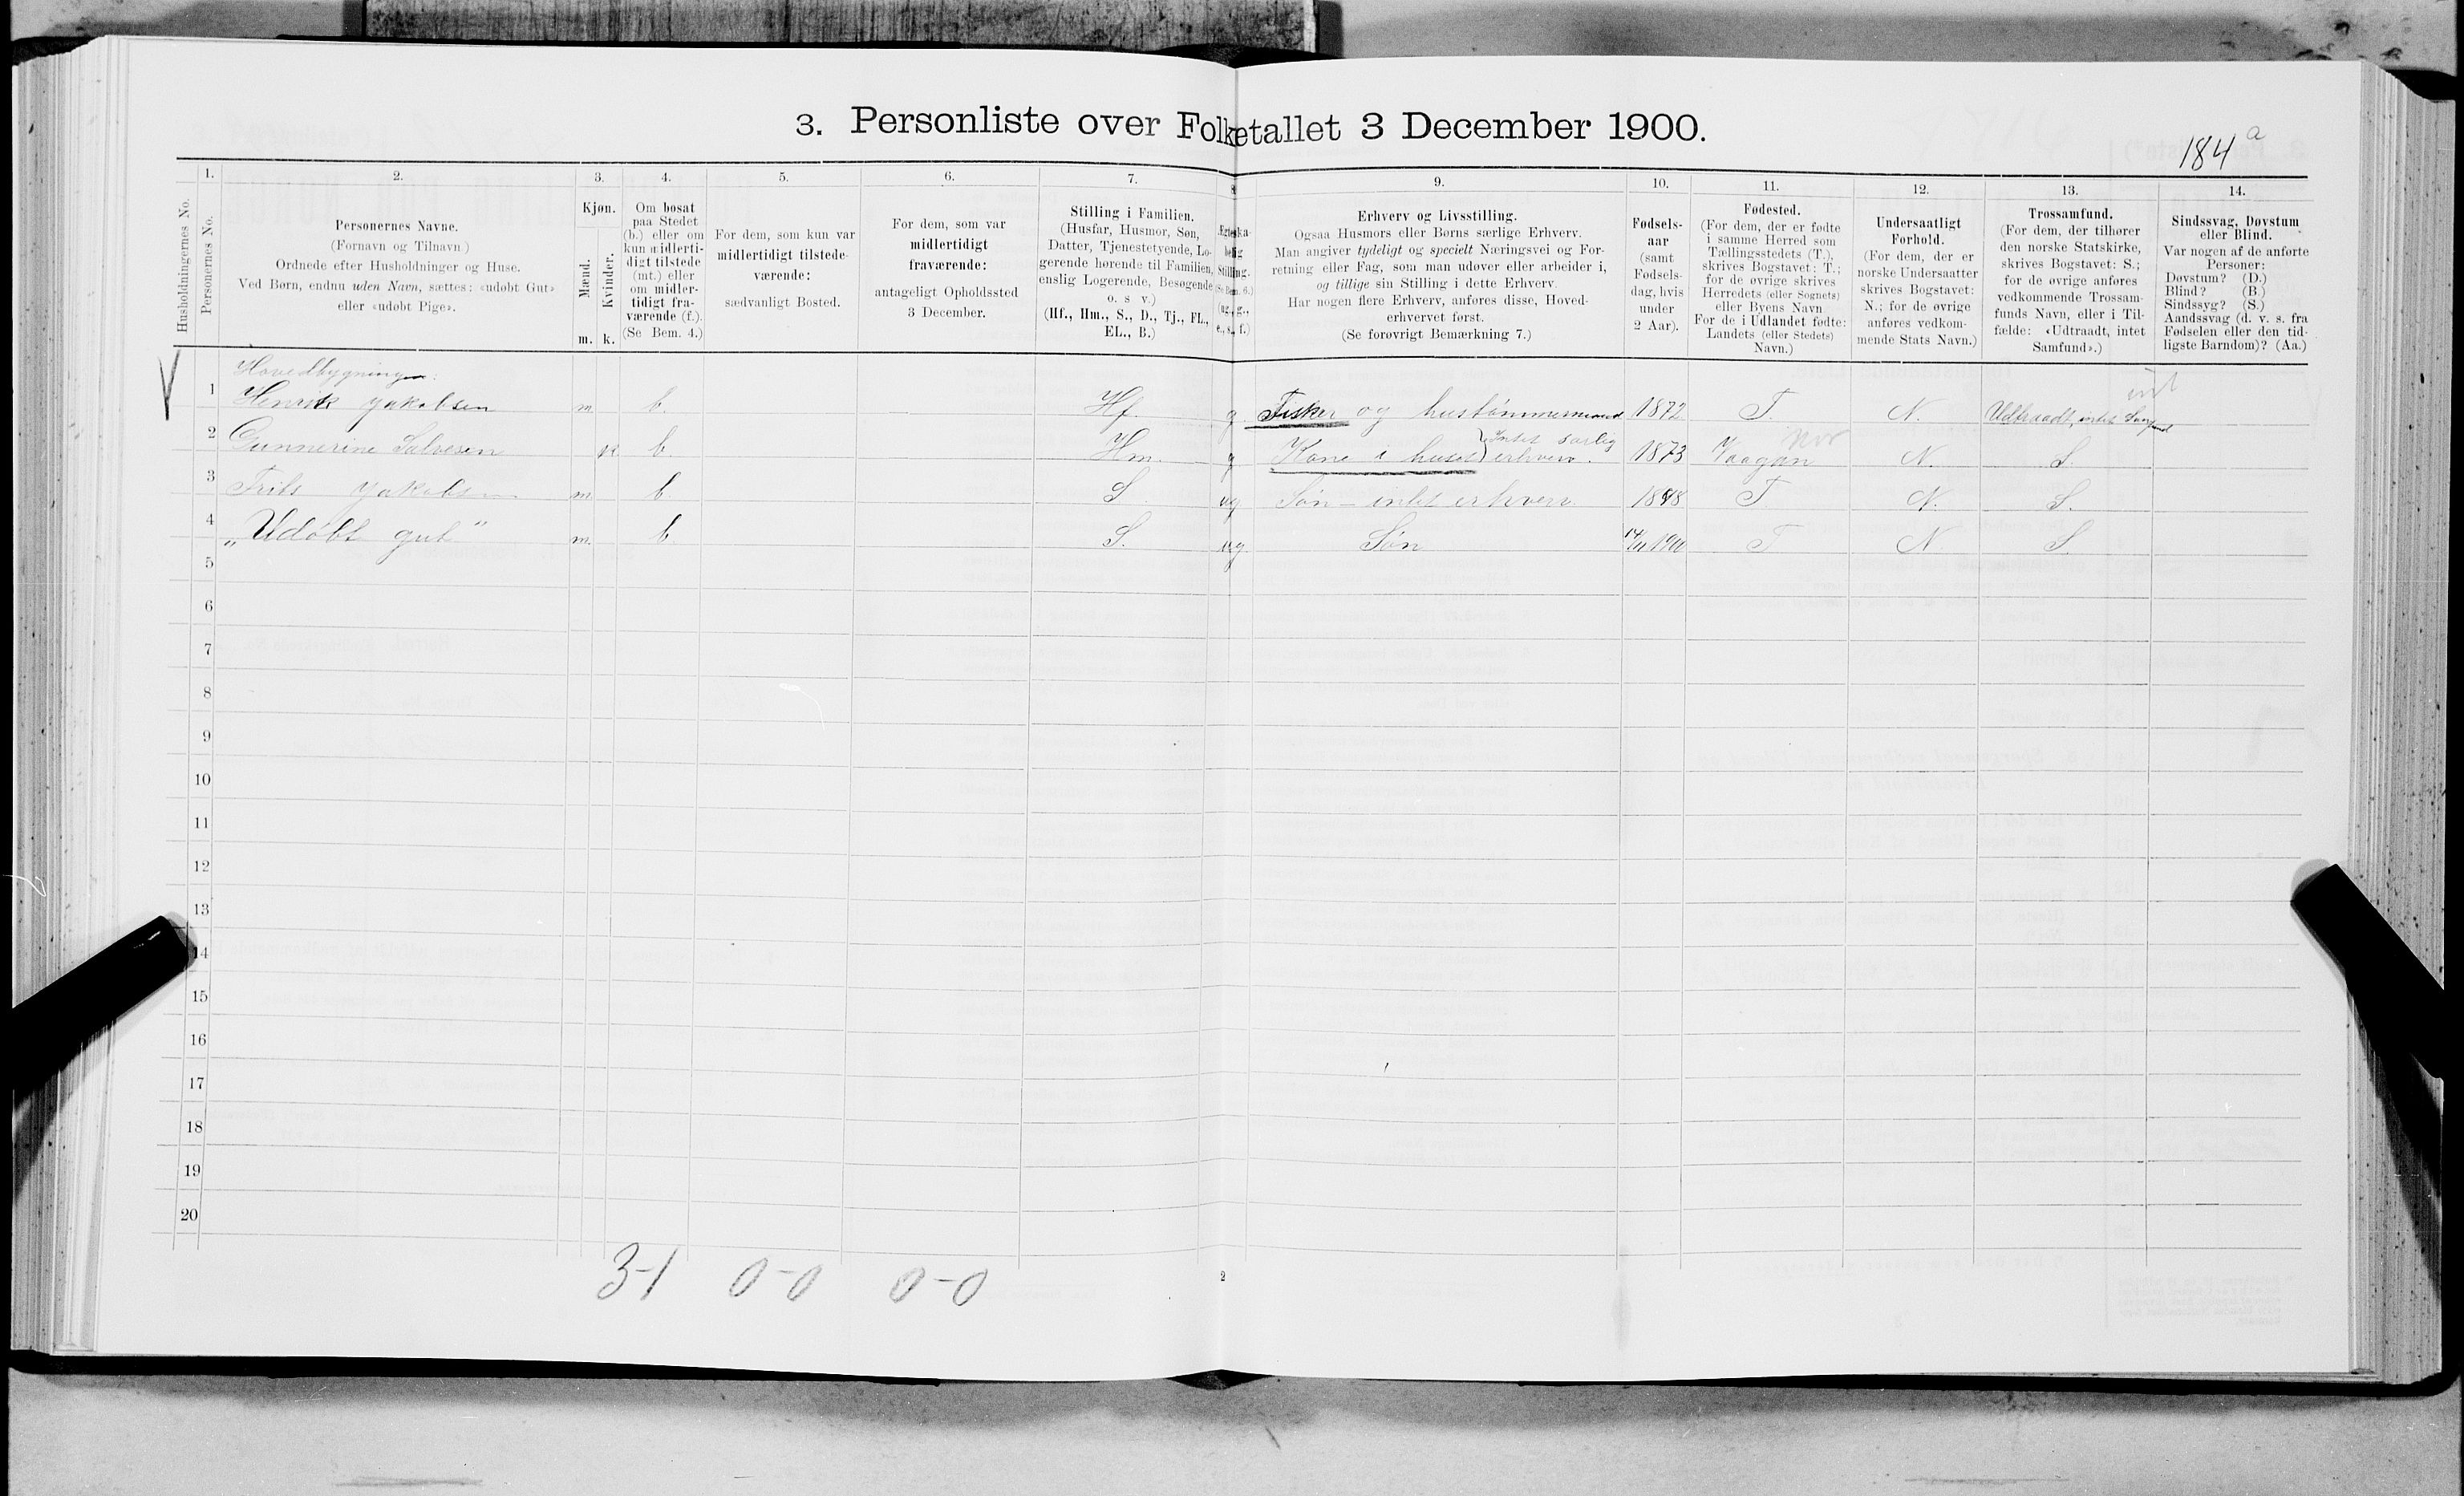 3. Personliste over Folketallet 3 December 1900.
184 a
1. 2. 3. 4. 5. 6. 7. 8 9. 10. 11. 12. 13. 14.
Husholdningernes No.
Personernes No.
Personernes Navne.
(Fornavn og Tilnavn)
Ordnede efter Husholdninger og Huse.
Ved Børn, endnu uden Navn, sættes: «udøbt Gut»
eller «udøbt Pige».
Kjøn.
Mænd.
Kvinder.
m. k.
Om bosat
paa Stedet
(b.) eller om
kun midlerti-
digt tilstede
(mt.) eller
om midler-
tidigt fra-
værende (f.).
(Se Bem. 4.)
For dem, som kun var
midlertidigt tilstede-
værende:
sædvanligt Bosted.
For dem, som var
midlertidigt
fraværende:
antageligt Opholdssted
3 December.
Stilling i Familien.
(Husfar, Husmor, Søn,
Datter, Tjenestetyende, Lo-
gerende hørende til Familien,
enslig Logerende, Besøgende
o. s v.)
(Hf., Hm., S., D., Tj., FL.,
EL., B.)
Ægteska-
belig
Stilling.
(Se Bem. 6.)
(ug., g.,
e., s., f.)
Erhverv og Livsstilling.
Ogsaa Husmors eller Børns særlige Erhverv.
Man angiver tydeligt og specielt Næringsvei og For-
retning eller Fag, som man udøver eller arbeider i,
og tillige sin Stilling i dette Erhverv.
Har nogen flere Erhverv, anføres disse, Hoved-
erhvervet først.
(Se forøvrigt Bemærkning 7.)
Fødsels-
aar
(samt
Fødsels-
dag, hvis
under
2 Aar).
Fødested.
(For dem, der er fødte
i samme Herred som
Tællingsstedets (T.),
skrives Bogstavet: T.;
for de øvrige skrives
Herredets (eller Sognets)
eller Byens Navn
For de i Udlandet fødte:
Landets (eller Stedets)
Navn.)
Undersaatligt
Forhold.
(For dem, der er
norske Undersaatter
skrives Bogstavet:
N.; for de øvrige
anføres vedkom-
mende Stats Navn.)
Trossamfund.
(For dem, der tilhører
den norske Statskirke,
skrives Bogstavet: S.;
for de øvrige anføres
vedkommende Trossam-
funds Navn, eller i Til-
fælde: «Udtraadt, intet
Samfund».)
Sindssvag, Døvstum
eller Blind.
Var nogen af de anførte
Personer:
Døvstum? (D.)
Blind? (B.)
Sindssyg? (S.)
Aandssvag (d. v. s. fra
Fødselen eller den tid-
ligste Barndom)? (Aa.)
Hovedbygningen:
1 Henrik Jakobsen m b. Hf. g Fisker og hustømmermand 1872 T. N. Udtraadt, intet Samfund
2 Gunnerine Salvesen k b. Hm. g Kone i huset } Intet særlig erhverv. 1873 Vaagan N. S.
3 Frits Jakobsen m b S ug Søn - intet erhverv 1898 T N. S.
4 „Udøbt gut“ m. b. S. ug. Søn 14/11 1900 T N S
5
6
7
8
9
10
11
12
13
14
15
16
17
18
19
20
3-1 0-0 0-0
2